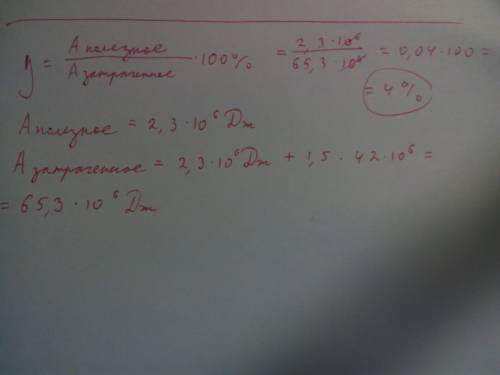 η = A полезное / A затраченное · 100% = 2,3·10⁶ / 65,3·10⁶ = 0,04·100 =
= 4%
A полезное = 2,3·10⁶ Дж
A затраченное = 2,3·10⁶ Дж + 1,5·42·10⁶ =
= 65,3·10⁶ Дж